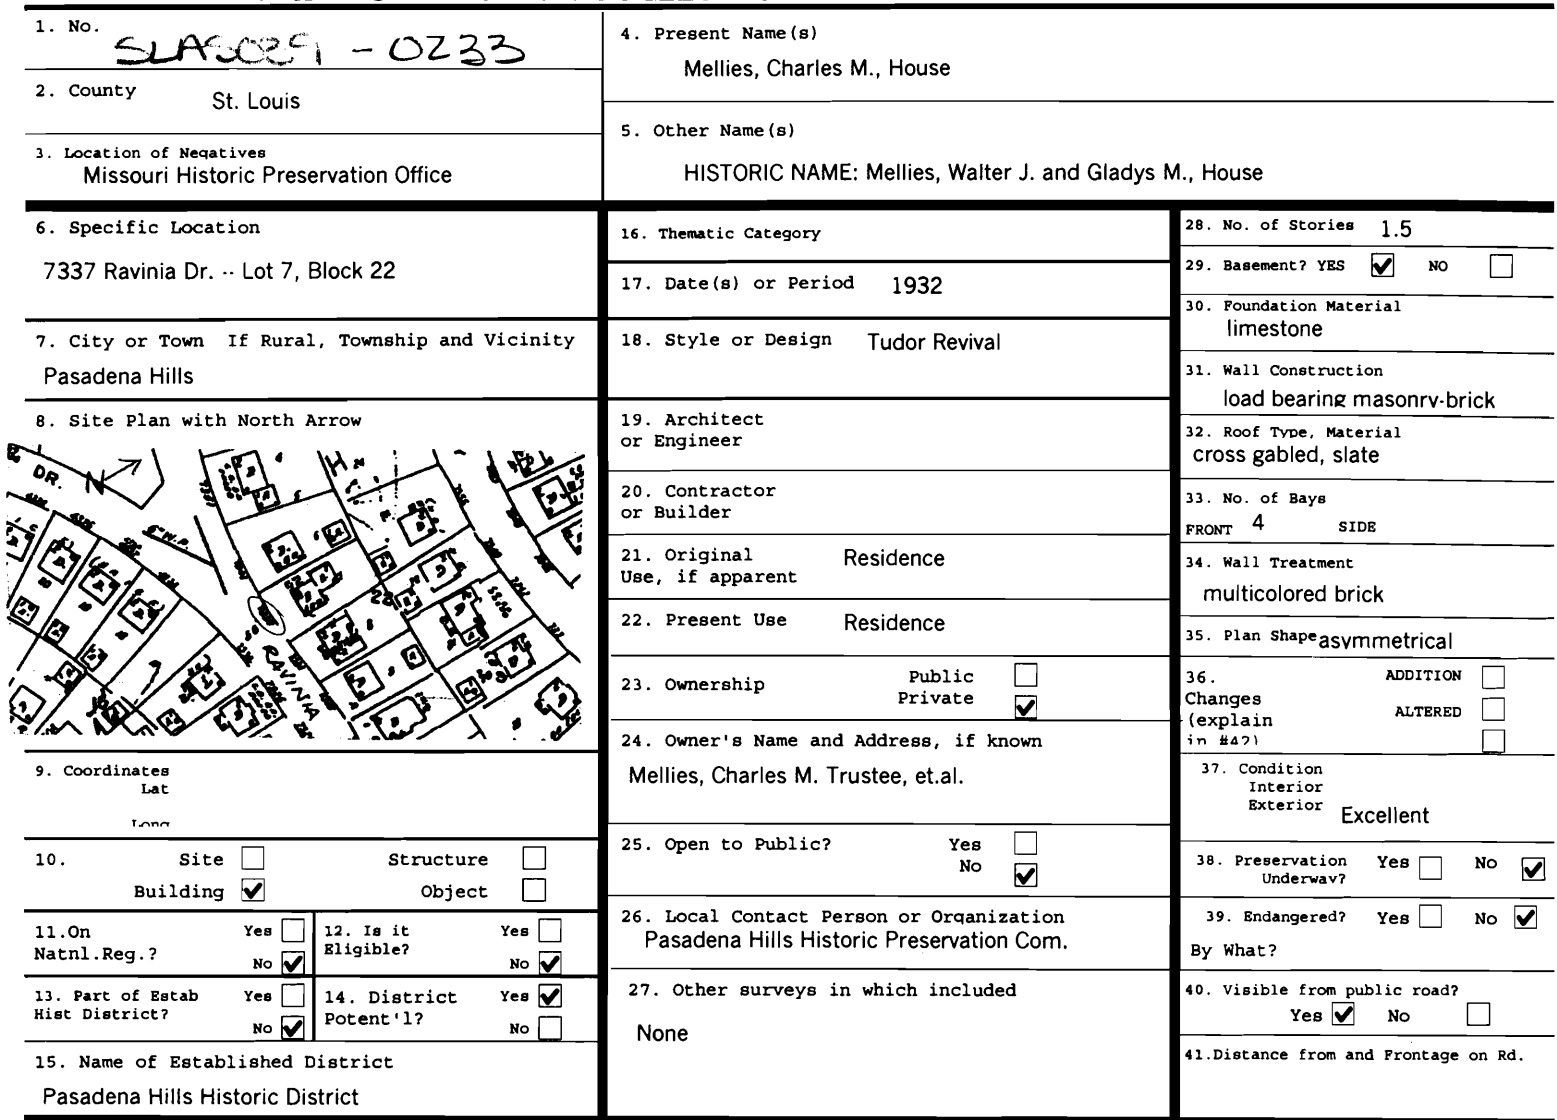 1. No. SLAS029 - 0233
2. County St. Louis
3. Location of Negatives
Missouri Historic Preservation Office
4. Present Name(s)
Mellies, Charles M., House
5. Other Name(s)
HISTORIC NAME: Mellies, Walter J. and Gladys M., House
6. Specific Location
7337 Ravinia Dr. -- Lot 7, Block 22
7. City or Town If Rural, Township and Vicinity
Pasadena Hills
8. Site Plan with North Arrow
DR.
N
6" W.P.
22
RAVINIA
9. Coordinates
Lat
Long
10. Site Structure
Building Object
11.On Yes
Natnl.Reg.? No
12. Is it Yes
Eligible? No
13. Part of Estab Yes
Hist District? No
14. District Yes
Potent'l? No
15. Name of Established District
Pasadena Hills Historic District
16. Thematic Category
17. Date(s) or Period 1932
18. Style or Design Tudor Revival
19. Architect
or Engineer
20. Contractor
or Builder
21. Original Residence
Use, if apparent
22. Present Use Residence
23. Ownership Public
Private
24. Owner's Name and Address, if known
Mellies, Charles M. Trustee, et.al.
25. Open to Public? Yes
No
26. Local Contact Person or Organization
Pasadena Hills Historic Preservation Com.
27. Other surveys in which included
None
28. No. of Stories 1.5
29. Basement? YES NO
30. Foundation Material
limestone
31. Wall Construction
load bearing masonry-brick
32. Roof Type, Material
cross gabled, slate
33. No. of Bays
FRONT 4 SIDE
34. Wall Treatment
multicolored brick
35. Plan Shape asymmetrical
36. ADDITION
Changes
(explain ALTERED
in #42)
37. Condition
Interior
Exterior Excellent
38. Preservation Yes No
Underway?
39. Endangered? Yes No
By What?
40. Visible from public road?
Yes No
41.Distance from and Frontage on Rd.